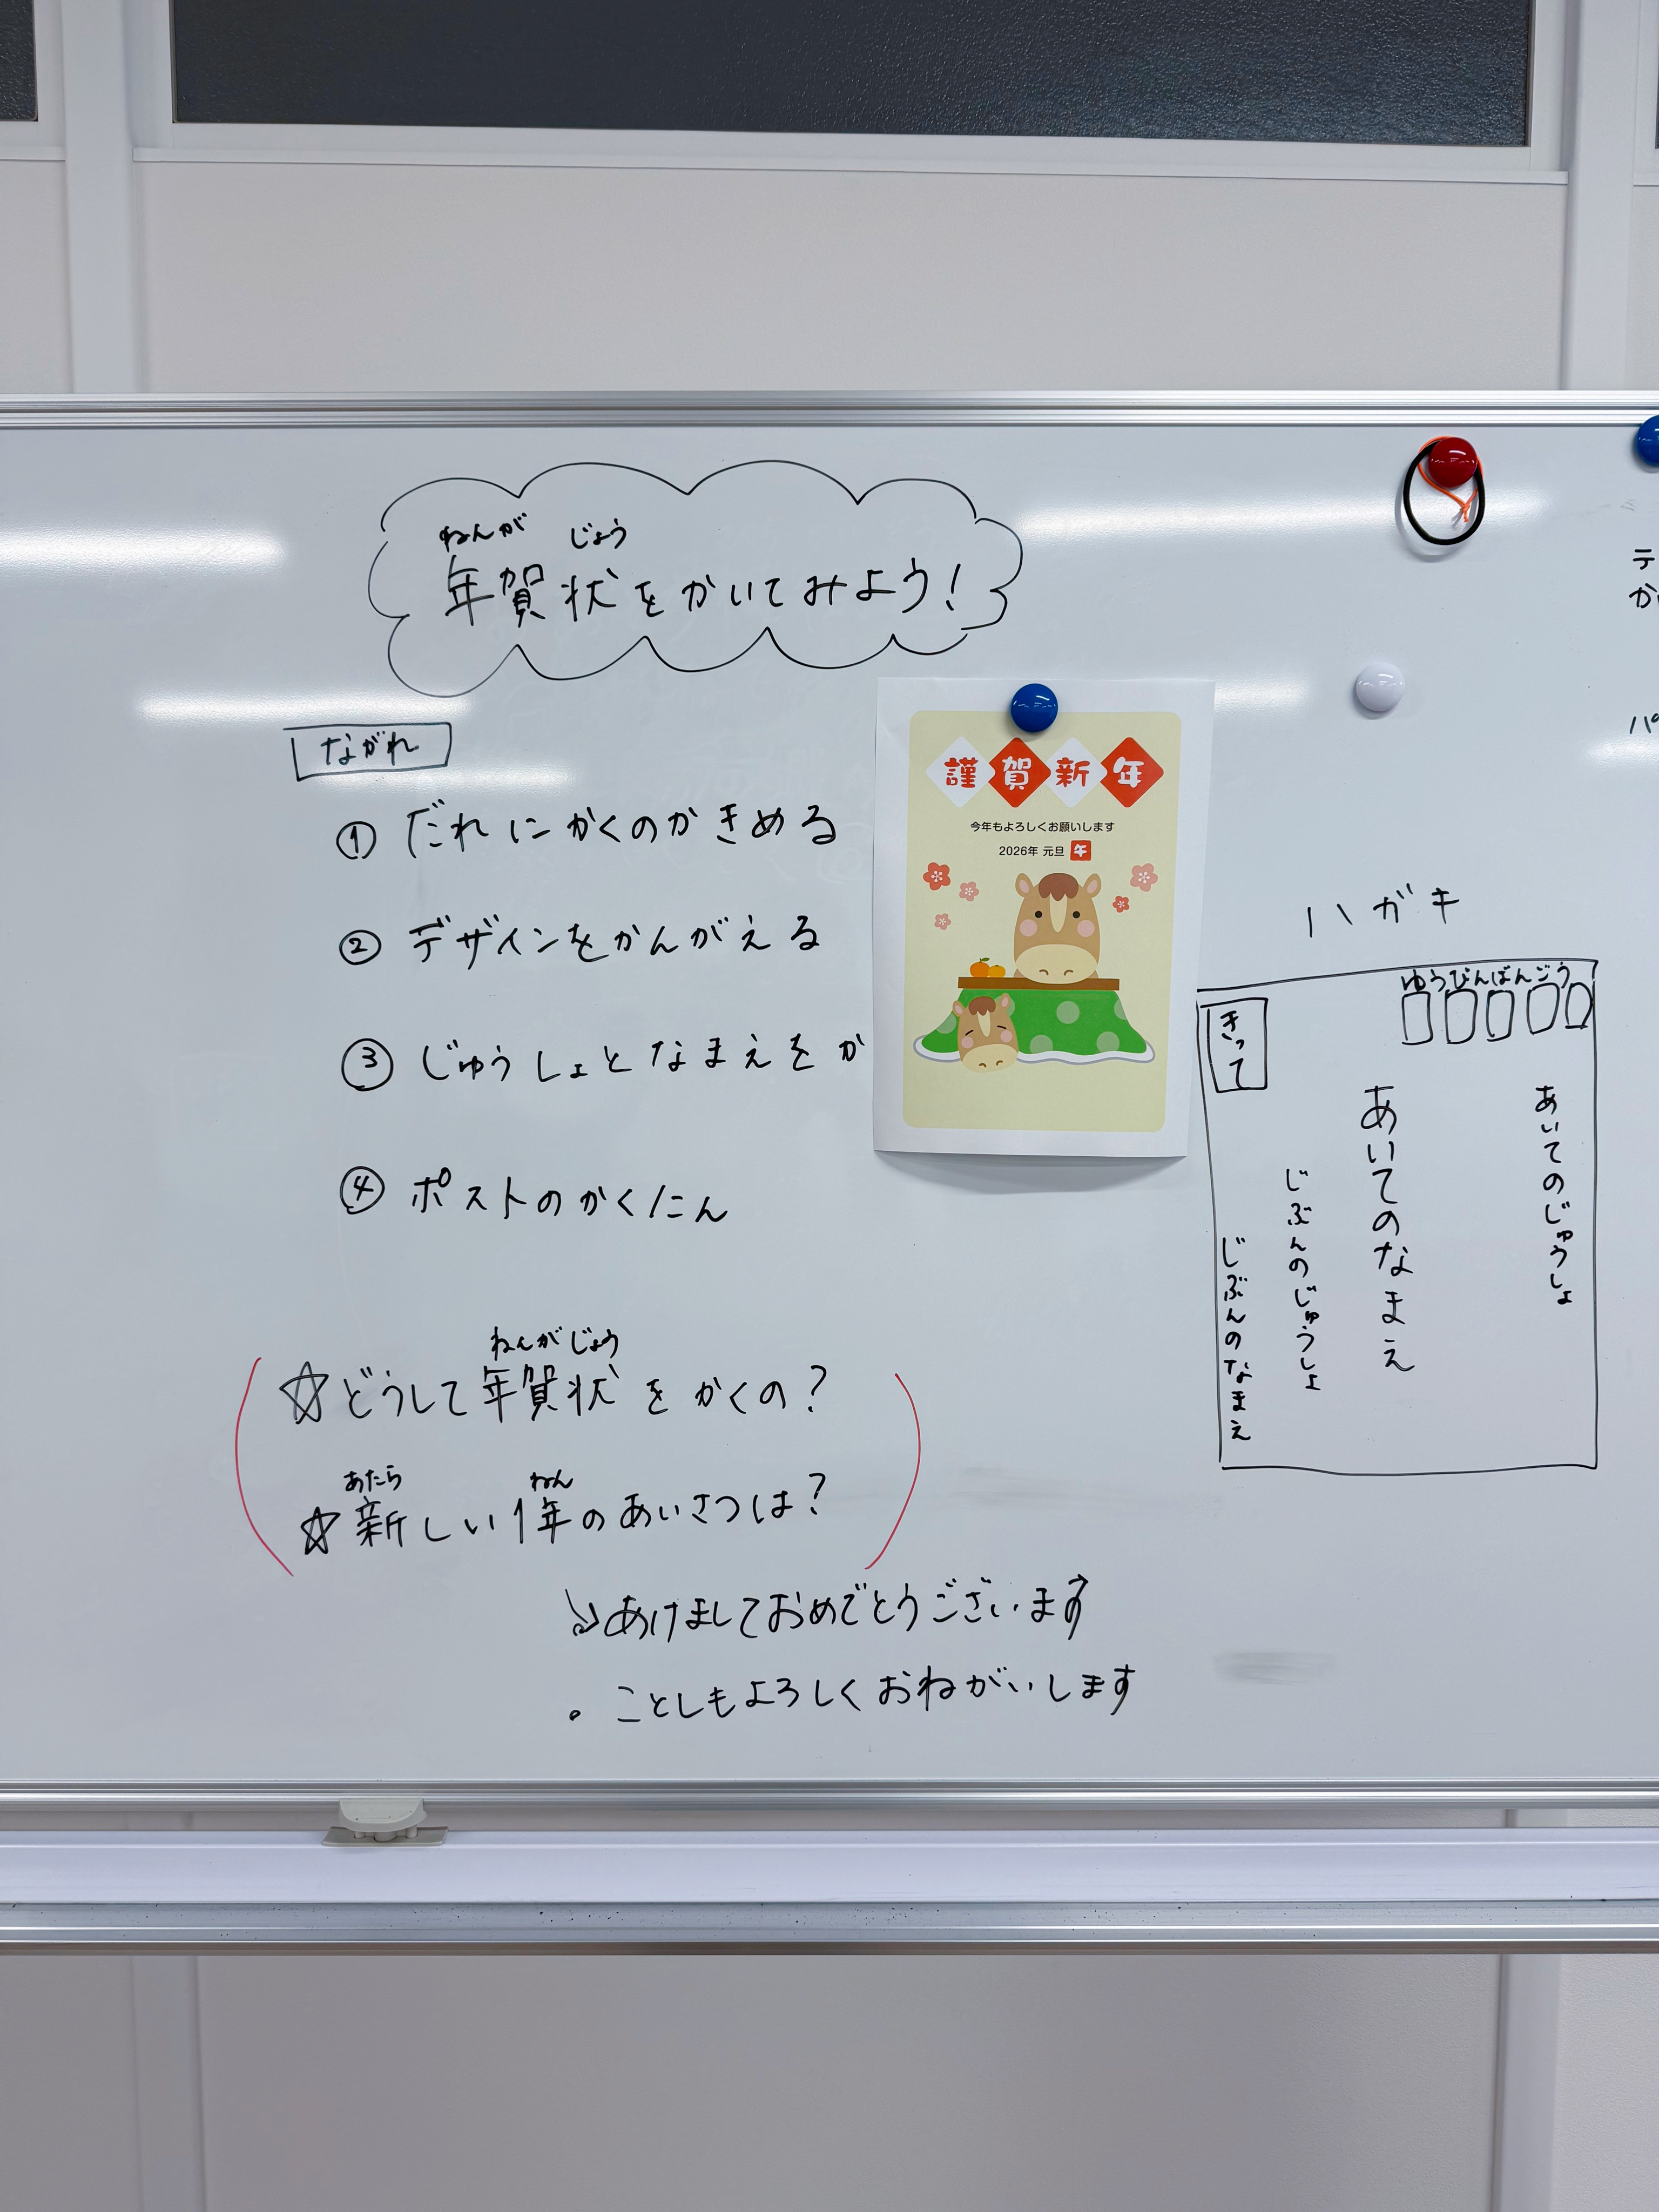 ねんが じょう
年賀状をかいてみよう!
ながれ
① だれにかくのかきめる
② デザインをかんがえる
③ じゅうしょとなまえをか
④ ポストのかくにん
謹賀新年
今年もよろしくお願いします
2026年 元旦 午
ハガキ
ゆうびんばんごう
きって
あいてのじゅうしょ
あいてのなまえ
じぶんのじゅうしょ
じぶんのなまえ
ねんがじょう
☆どうして年賀状をかくの?
あたら ねん
☆新しい1年のあいさつは?
あけましておめでとうございます
。ことしもよろしくおねがいします
テ
か
パ